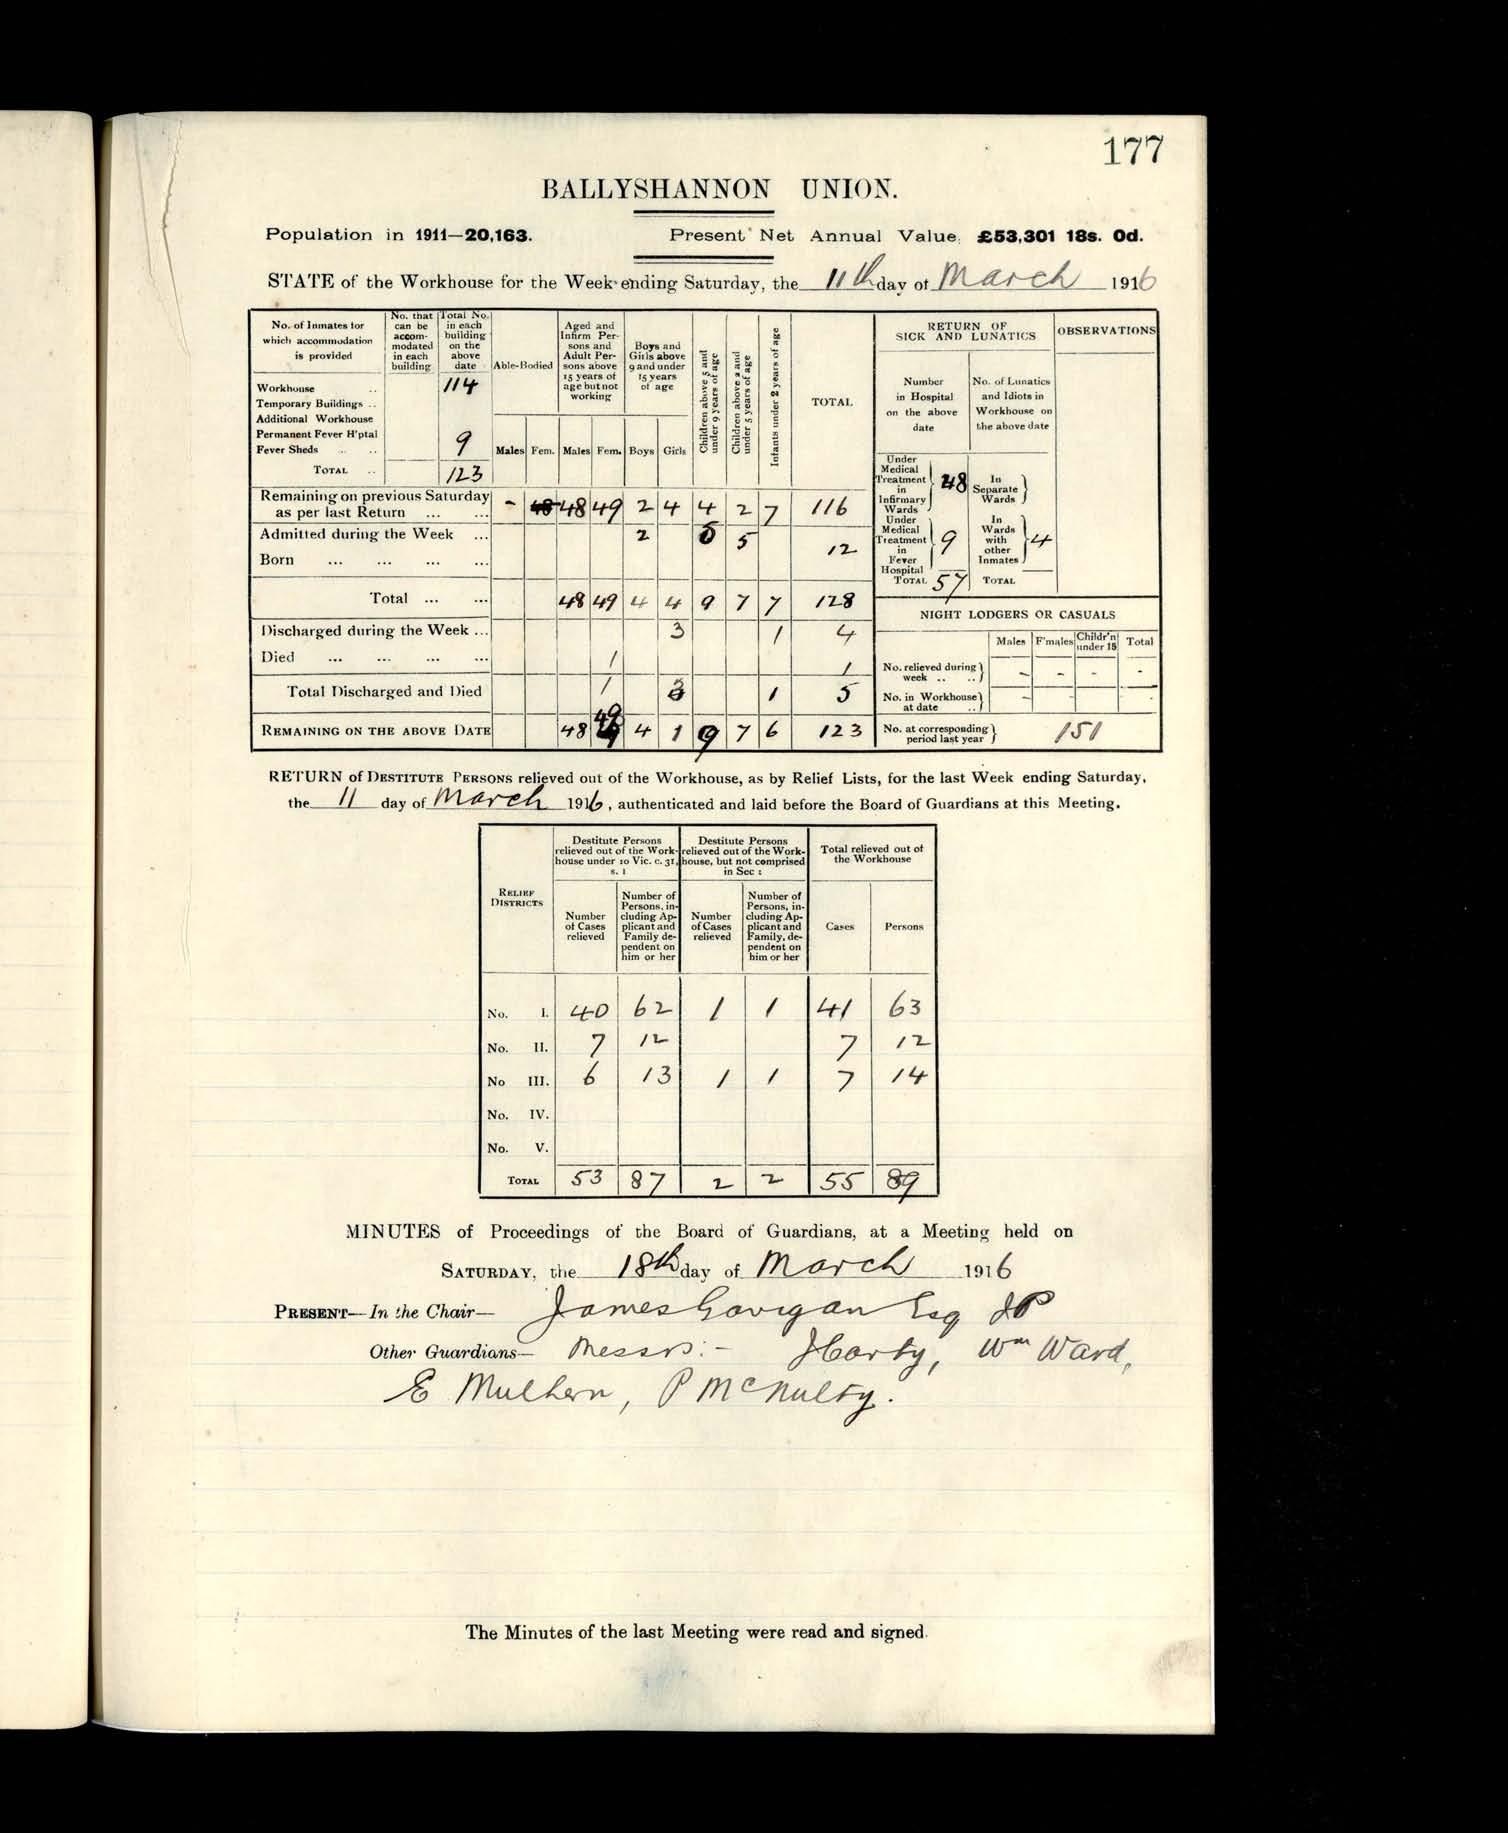 177
BALLYSHANNON UNION.
Population in 1911—20,163. Present Net Annual Value, £53,301 18s. 0d.
STATE of the Workhouse for the Week ending Saturday, the 11th day of March 1916
No. of Inmates for which accommodation is provided | No. that can be accommodated in each building | Total No. in each building on the above date | Able-Bodied | Aged and Infirm Persons and Adult Persons above 15 years of age but not working | Boys and Girls above 9 and under 15 years of age | Children above 5 and under 9 years of age | Children above 2 and under 5 years of age | Infants under 2 years of age | TOTAL | RETURN OF SICK AND LUNATICS | OBSERVATIONS
Males Fem. Males Fem. Boys Girls
Workhouse .. 114
Temporary Buildings ..
Additional Workhouse
Permanent Fever H'ptal 9
Fever Sheds .. ..
TOTAL .. 123
Remaining on previous Saturday as per last Return ... ... - 48 48 49 2 4 4 2 7 116
Admitted during the Week ... 2 5 5 12
Born ... ... ... ...
Total ... ... 48 49 4 4 9 7 7 128
Discharged during the Week ... 3 1 4
Died ... ... ... ... 1 1
Total Discharged and Died 1 3 1 5
REMAINING ON THE ABOVE DATE 48 49 4 1 9 7 6 123
Number in Hospital on the above date | No. of Lunatics and Idiots in Workhouse on the above date
Under Medical Treatment in Infirmary Wards 48 | In Separate Wards
Under Medical Treatment in Fever Hospital 9 | In Wards with other Inmates 4
TOTAL 57 | TOTAL
NIGHT LODGERS OR CASUALS
Males F'males Childr'n under 15 Total
No. relieved during week .. .. - - - -
No. in Workhouse at date .. - - - -
No. at corresponding period last year 151
RETURN of DESTITUTE PERSONS relieved out of the Workhouse, as by Relief Lists, for the last Week ending Saturday,
the 11 day of March 1916, authenticated and laid before the Board of Guardians at this Meeting.
RELIEF DISTRICTS | Destitute Persons relieved out of the Workhouse under 10 Vic. c. 31, s. 1 | Destitute Persons relieved out of the Workhouse, but not comprised in Sec 1 | Total relieved out of the Workhouse
Number of Cases relieved | Number of Persons, including Applicant and Family dependent on him or her | Number of Cases relieved | Number of Persons, including Applicant and Family, dependent on him or her | Cases | Persons
No. I. 40 62 1 1 41 63
No. II. 7 12 7 12
No III. 6 13 1 1 7 14
No. IV.
No. V.
TOTAL 53 87 2 2 55 89
MINUTES of Proceedings of the Board of Guardians, at a Meeting held on
SATURDAY, the 18th day of March 1916
PRESENT—In the Chair— James Gavigan Esq JP
Other Guardians— Messrs:- J Harty, Wm Ward,
E Mulhern, P McNulty.
The Minutes of the last Meeting were read and signed.